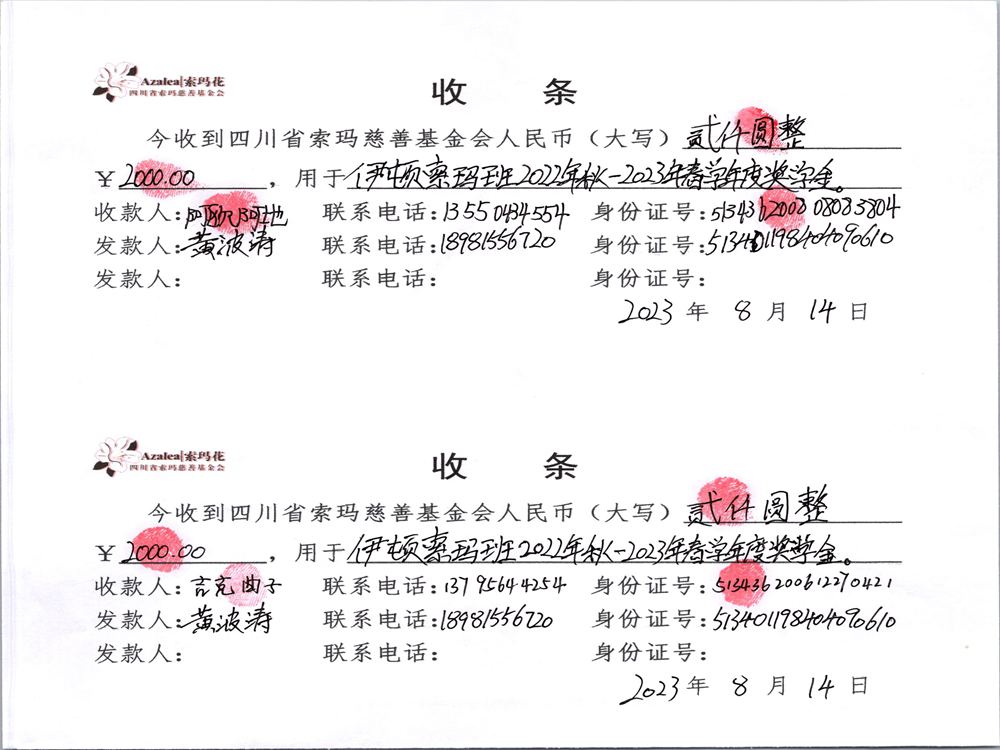 Azalea|索玛花
四川省索玛慈善基金会
收 条
今收到四川省索玛慈善基金会人民币（大写）贰仟圆整
￥2000.00，用于伊顿索玛班2022年秋-2023年春学年度奖学金。
收款人： 联系电话：13550434554 身份证号：
发款人：黄波涛 联系电话：18981556720 身份证号：513401198404090610
发款人： 联系电话： 身份证号：
2023年 8月 14日
Azalea|索玛花
四川省索玛慈善基金会
收 条
今收到四川省索玛慈善基金会人民币（大写）贰仟圆整
￥2000.00，用于伊顿索玛班2022年秋-2023年春学年度奖学金。
收款人：吉克曲子 联系电话：13795644254 身份证号：513436200612270421
发款人：黄波涛 联系电话：18981556720 身份证号：513401198404090610
发款人： 联系电话： 身份证号：
2023年 8月 14日